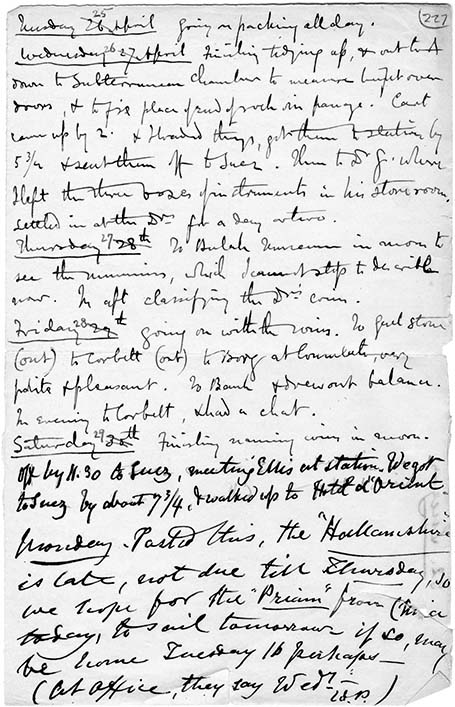 (227
25
Tuesday 26 April going on packing all day.
Wednesday 26 27 April Finishing tidying up, & out to A
down to Subterranean chamber to measure bits over
doors, & to fix place of end of rock in passage. Cart
came up by 2. & I loaded things, got them to station by
5 3/4 & sent them off to Suez. Then to Dr G. where
I left the three boxes of instruments in his store room,
settled in at the Drs for a day or two.
Thursday 27 28th To Bulak Museum in morn to
see the mummies, which I cannot stop to describe
now. In aft classifying the Drs coins.
Friday 28 29th going on with the coins. To
(out) to Corbett (out) to Borg at Consulate, very
polite & pleasant. To Bank & drew out balance.
In evening to Corbett, & had a chat.
Saturday 29 30th Finishing naming coins in morn.
off by 11.30 to Suez, meeting Ellis at station. We got
to Suez by about 7 3/4, & walked up to Hotel d'Orient
Monday. Posted this, the "
is late, not due till Thursday, so
we hope for the "Priam" from China
today, to sail tomorrow if so, may
be home Tuesday 16 perhaps—
(At office, they say Wedy.—
18.)